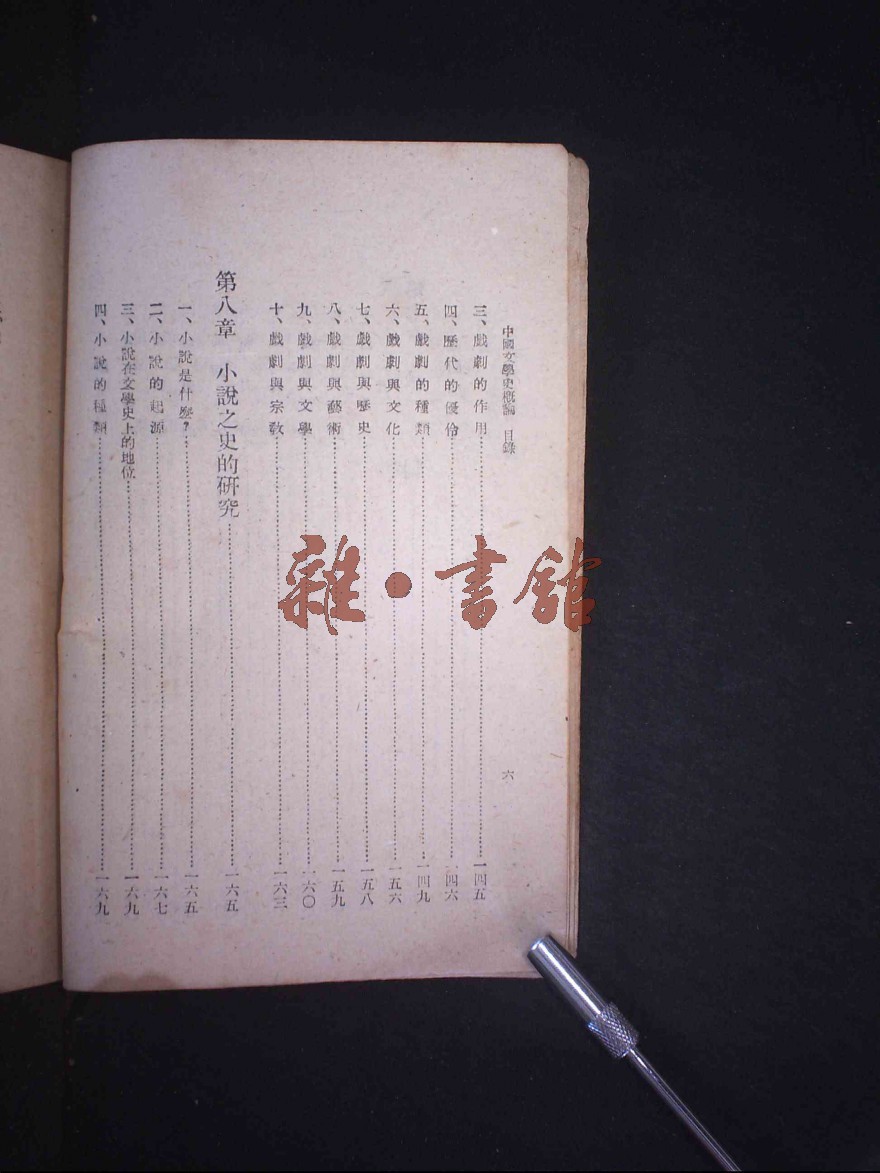 中國文學史概論　目錄
六
三、戲劇的作用……一四五
四、歷代的優伶……一四六
五、戲劇的種類……一四九
六、戲劇與文化……一五六
七、戲劇與歷史……一五八
八、戲劇與藝術……一五九
九、戲劇與文學……一六〇
十、戲劇與宗教……一六三
第八章　小說之史的研究……一六五
一、小說是什麼？……一六五
二、小說的起源……一六七
三、小說在文學史上的地位……一六九
四、小說的種類……一六九
雜·書館